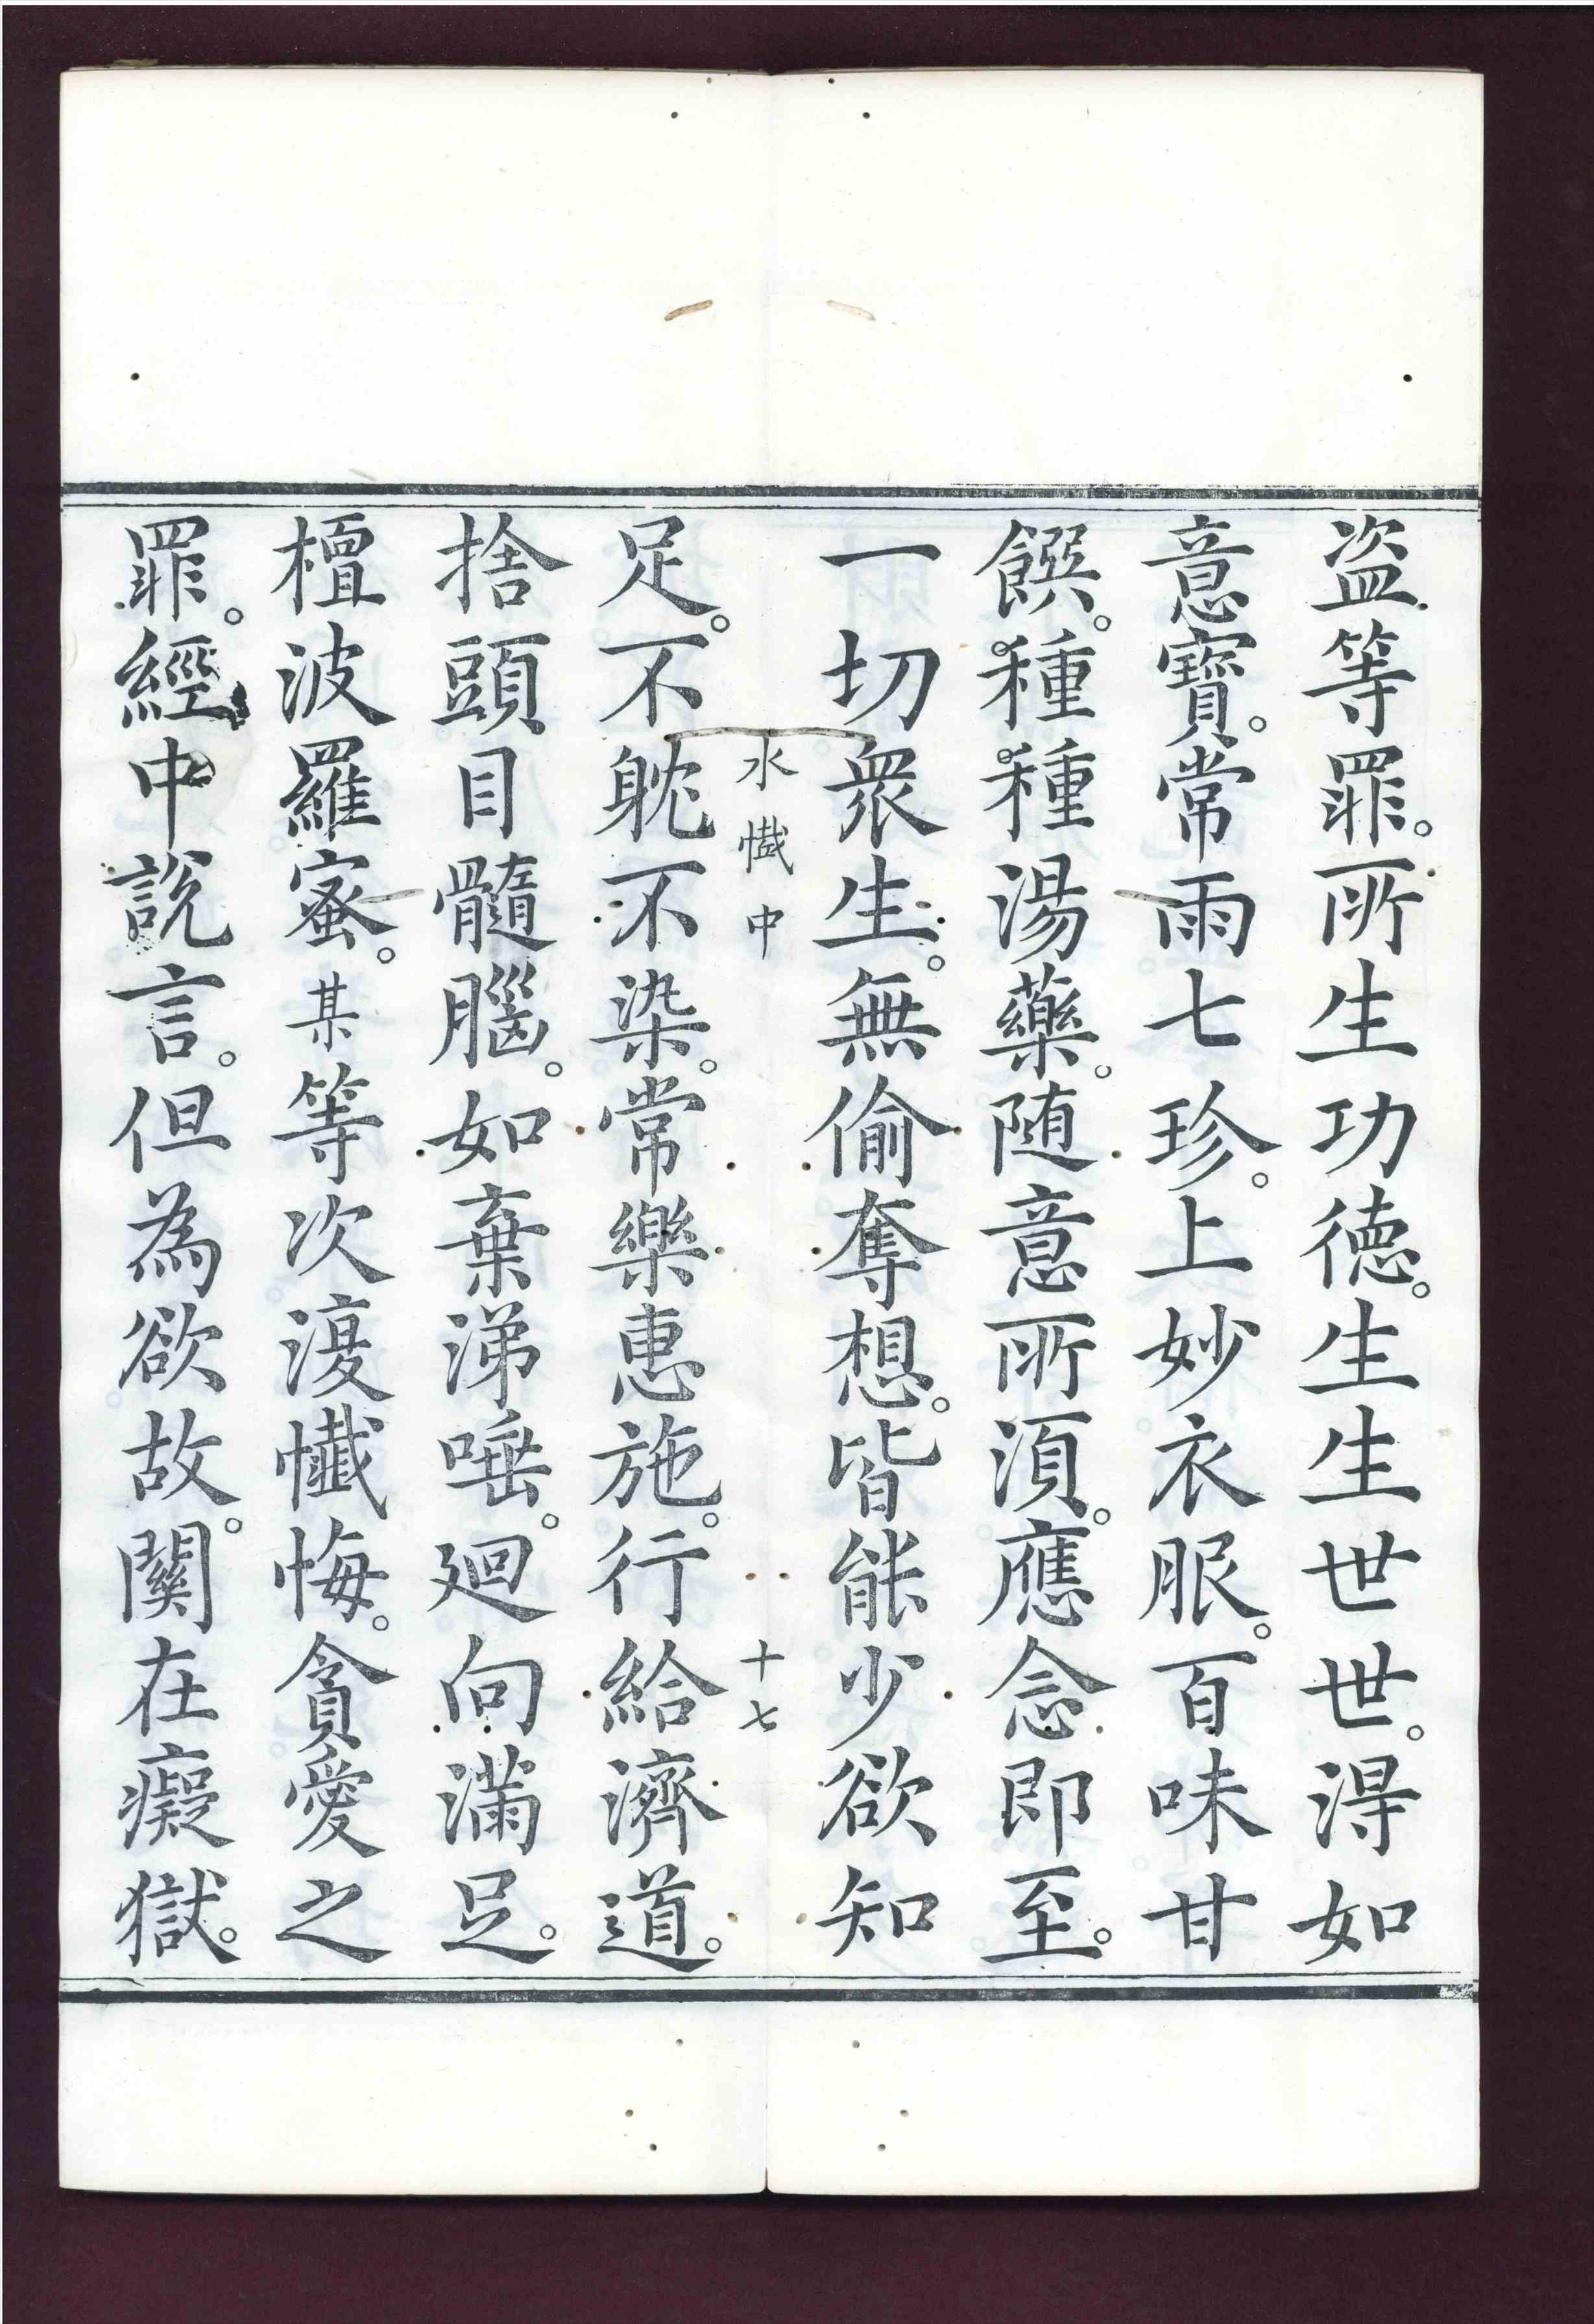 盗等罪。所生功徳。生生世世。淂如
意寶。常雨七珍。上妙衣服。百味甘
饌。種種湯藥。随意所湏。應念即至。
一切衆生。無偷奪想。皆能少欲知
水懴中
十七
足。不躭不染。常樂惠施。行給濟道。
捨頭目髓腦。如棄涕唾。廻向滿足。
檀波羅蜜。某等次復懺悔。貪愛之
罪。經中説言。但為欲故。関在癡獄。